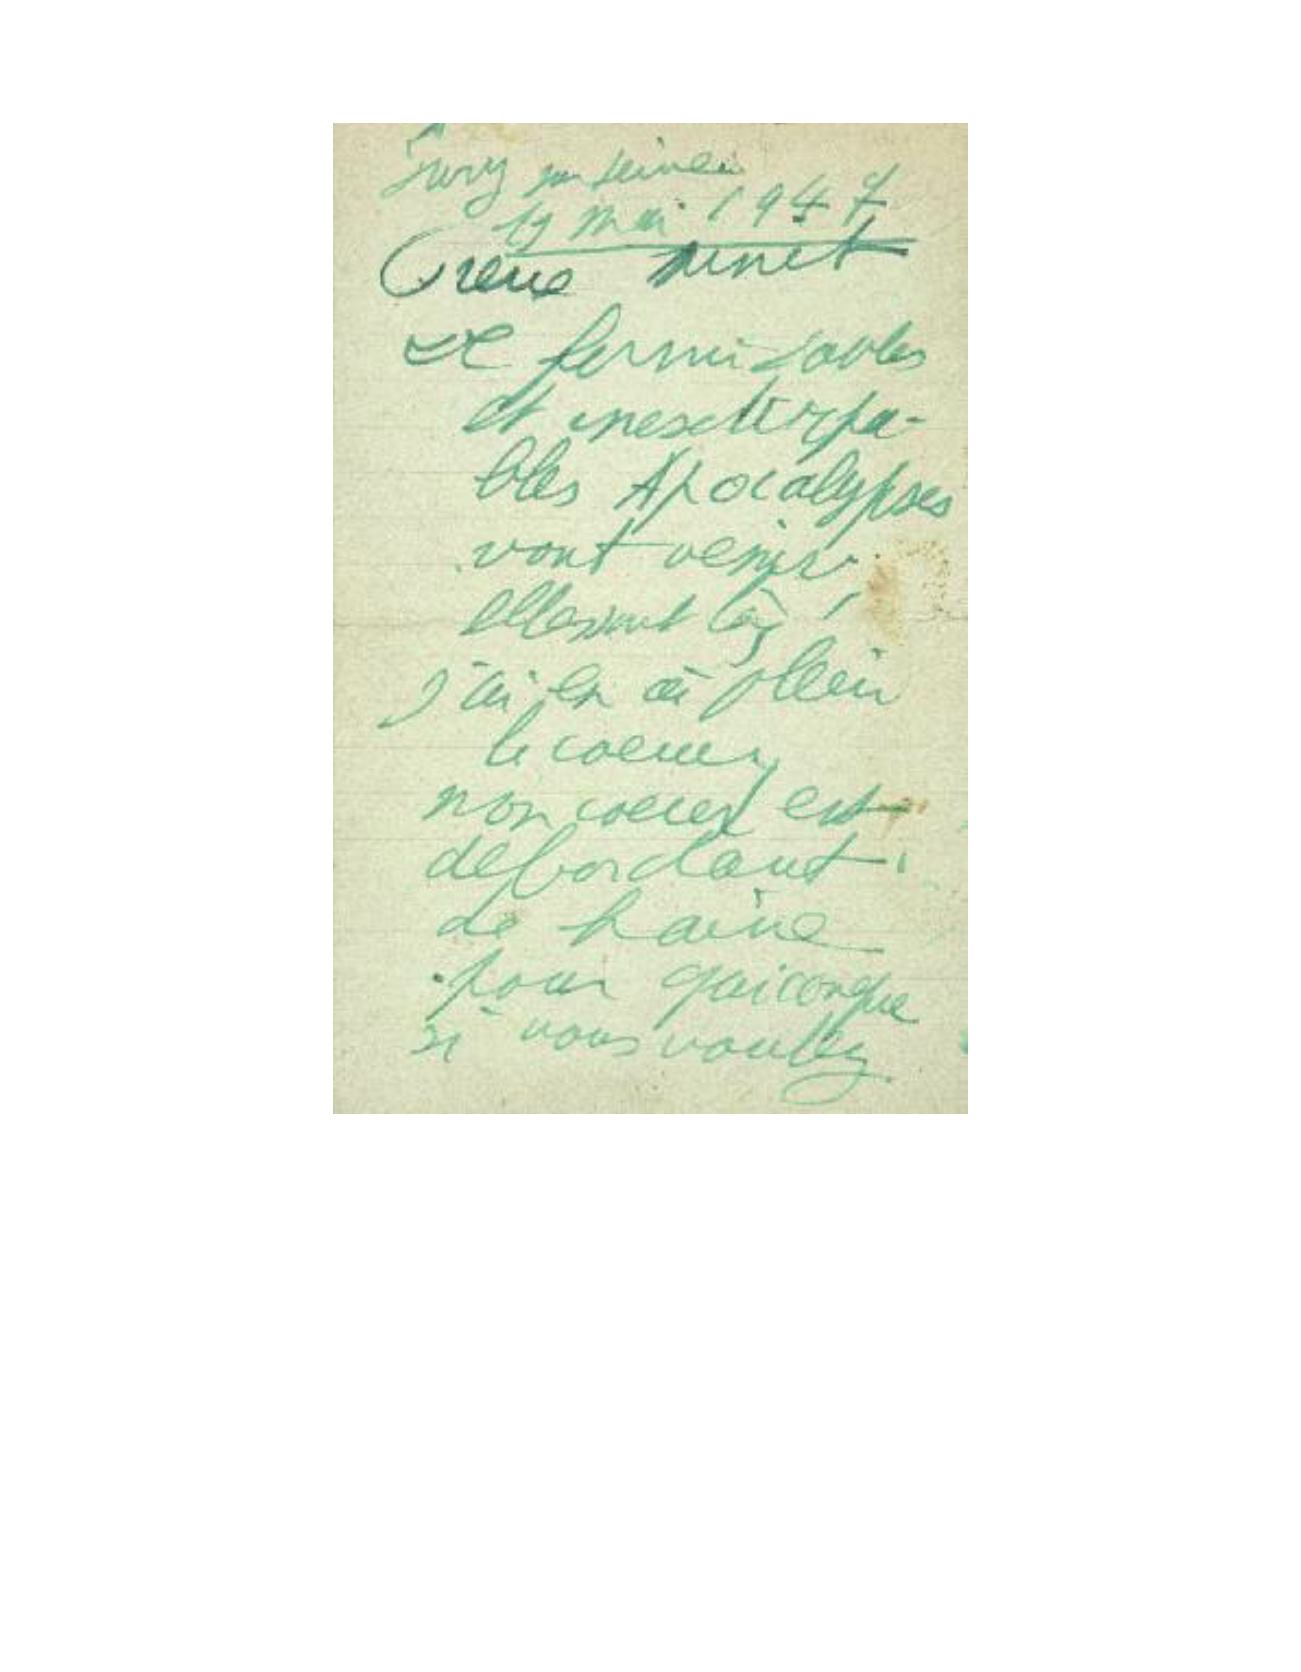 Ivry sur Seine
19 mai 1947
De formidables
et inextirpa-
bles Apocalypses
vont venir,
elles sont là,
j'ai en ai plein
le coeur,
mon coeur est
débordant
de haine
pour quiconque
si vous voulez